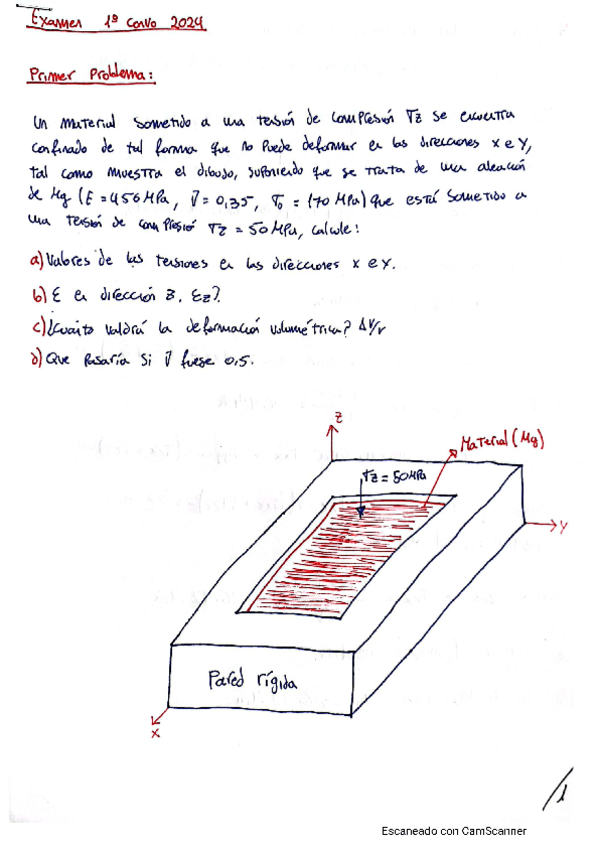 Examen 1º Convo 2024
Primer Problema:
Un material sometido a una tensión de compresión σz se encuentra
confinado de tal forma que no puede deformar en las direcciones x e y,
tal como muestra el dibujo, suponiendo que se trata de una aleación
de Mg (E = 456 MPa, ν = 0,35, σ₀ = 170 MPa) que está sometido a
una tensión de compresión σz = 50 MPa, calcule:
a) Valores de las tensiones en las direcciones x e y.
b) ε en dirección z, εz?
c) ¿Cuánto valdrá la deformación volumétrica? ΔV/V
d) Que pasaría si ν fuese 0,5.
z
Material (Mg)
σz = 50 MPa
y
Pared rígida
x
1
Escaneado con CamScanner